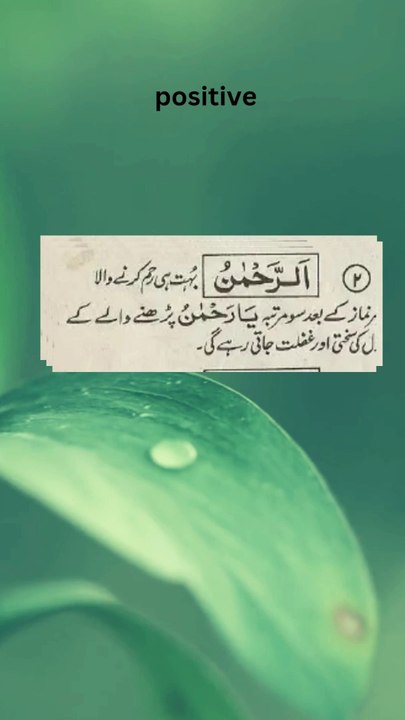 positive
۲ اَلرَّحْمٰنُ بہت ہی رحم کرنے والا
ہر نماز کے بعد سو مرتبہ یَا رَحْمٰنُ پڑھنے والے کے
دل کی سختی اور غفلت جاتی رہے گی۔